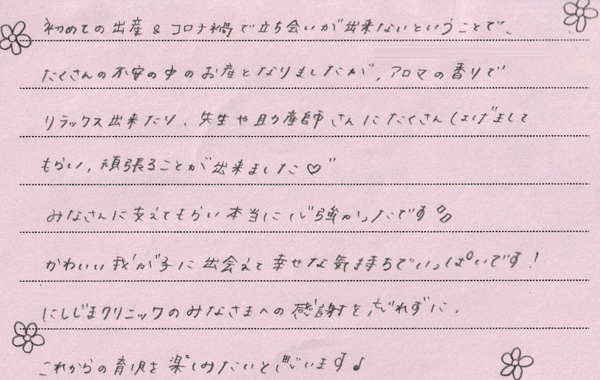 初めての出産 & コロナ禍で立ち会いが出来ないということで、
たくさんの不安の中のお産となりましたが、アロマの香りで
リラックス出来たり、先生や助産師さんにたくさんはげまして
もらい、頑張ることが出来ました♡"
みなさんに支えてもらい本当に心強かったです
かわいい我が子に出会えて幸せな気持ちでいっぱいです!
にしじまクリニックのみなさまへの感謝を忘れずに、
これからの育児を楽しみたいと思います♪